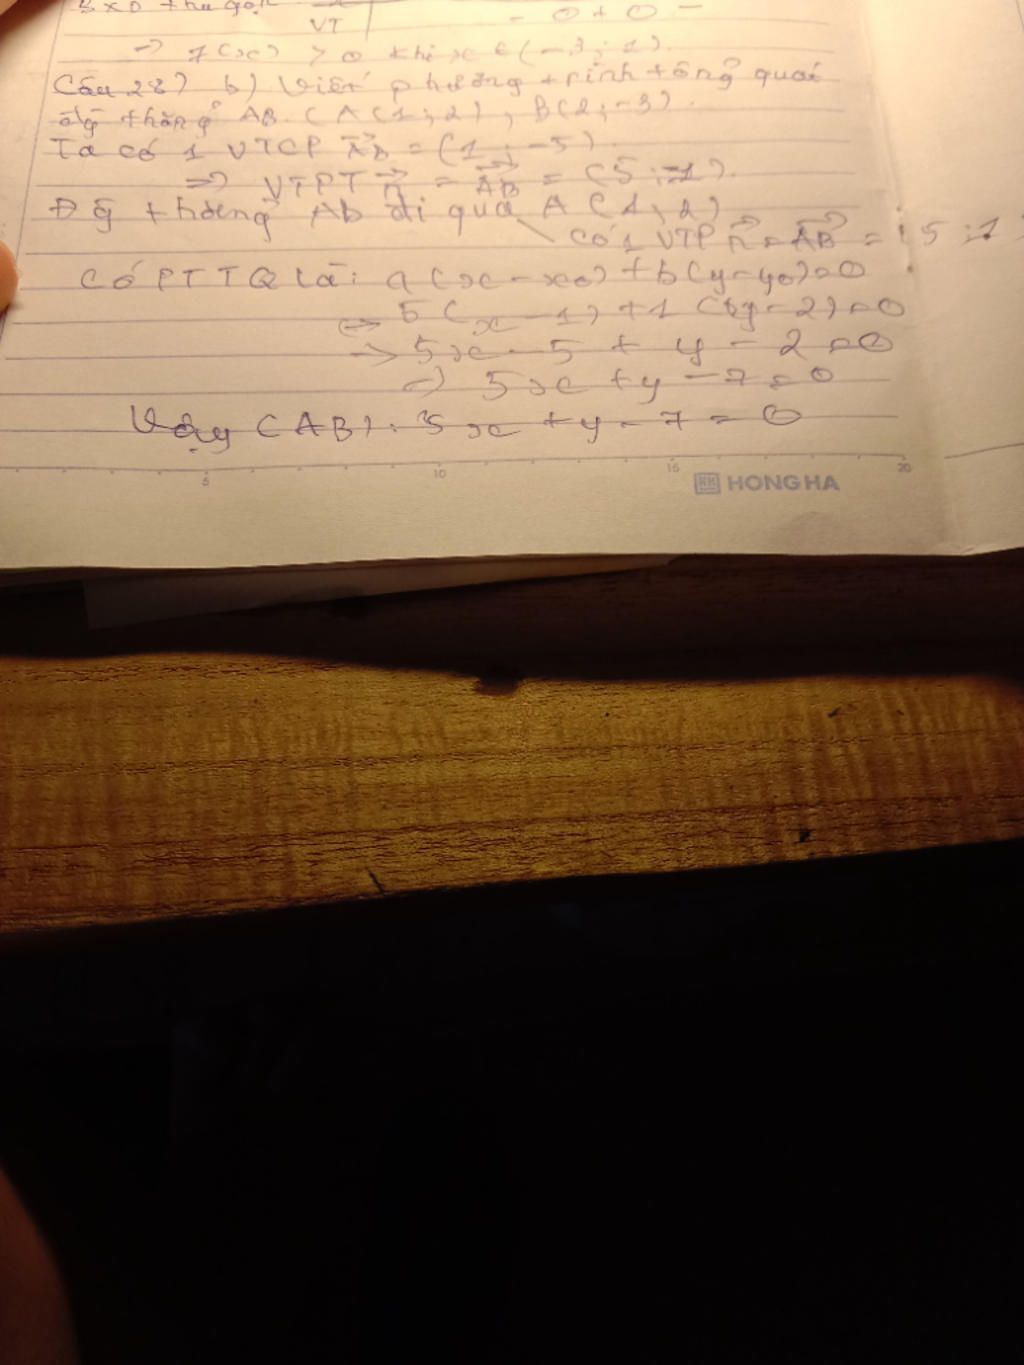 BXD thu gọn
VT - 0 + 0 -
=> f(x) > 0 khi x ∈ (-3; 1).
Câu 28) b) Viết phương trình tổng quát
đg thẳng AB. (A(1; 2), B(2; -3).
Ta có 1 VTCP AB = (1; -5).
=> VTPT n = AB = (5; 1).
Đg thẳng Ab đi qua A(1; 2)
có 1 VTP n = AB = (5; 1
Có PTTQ là: a(x - x0) + b(y - y0) = 0
<=> 5(x - 1) + 1(y - 2) = 0
=> 5x - 5 + y - 2 = 0
=> 5x + y - 7 = 0
Vậy (AB): 5x + y - 7 = 0
5 10 15 20
HH HONG HA